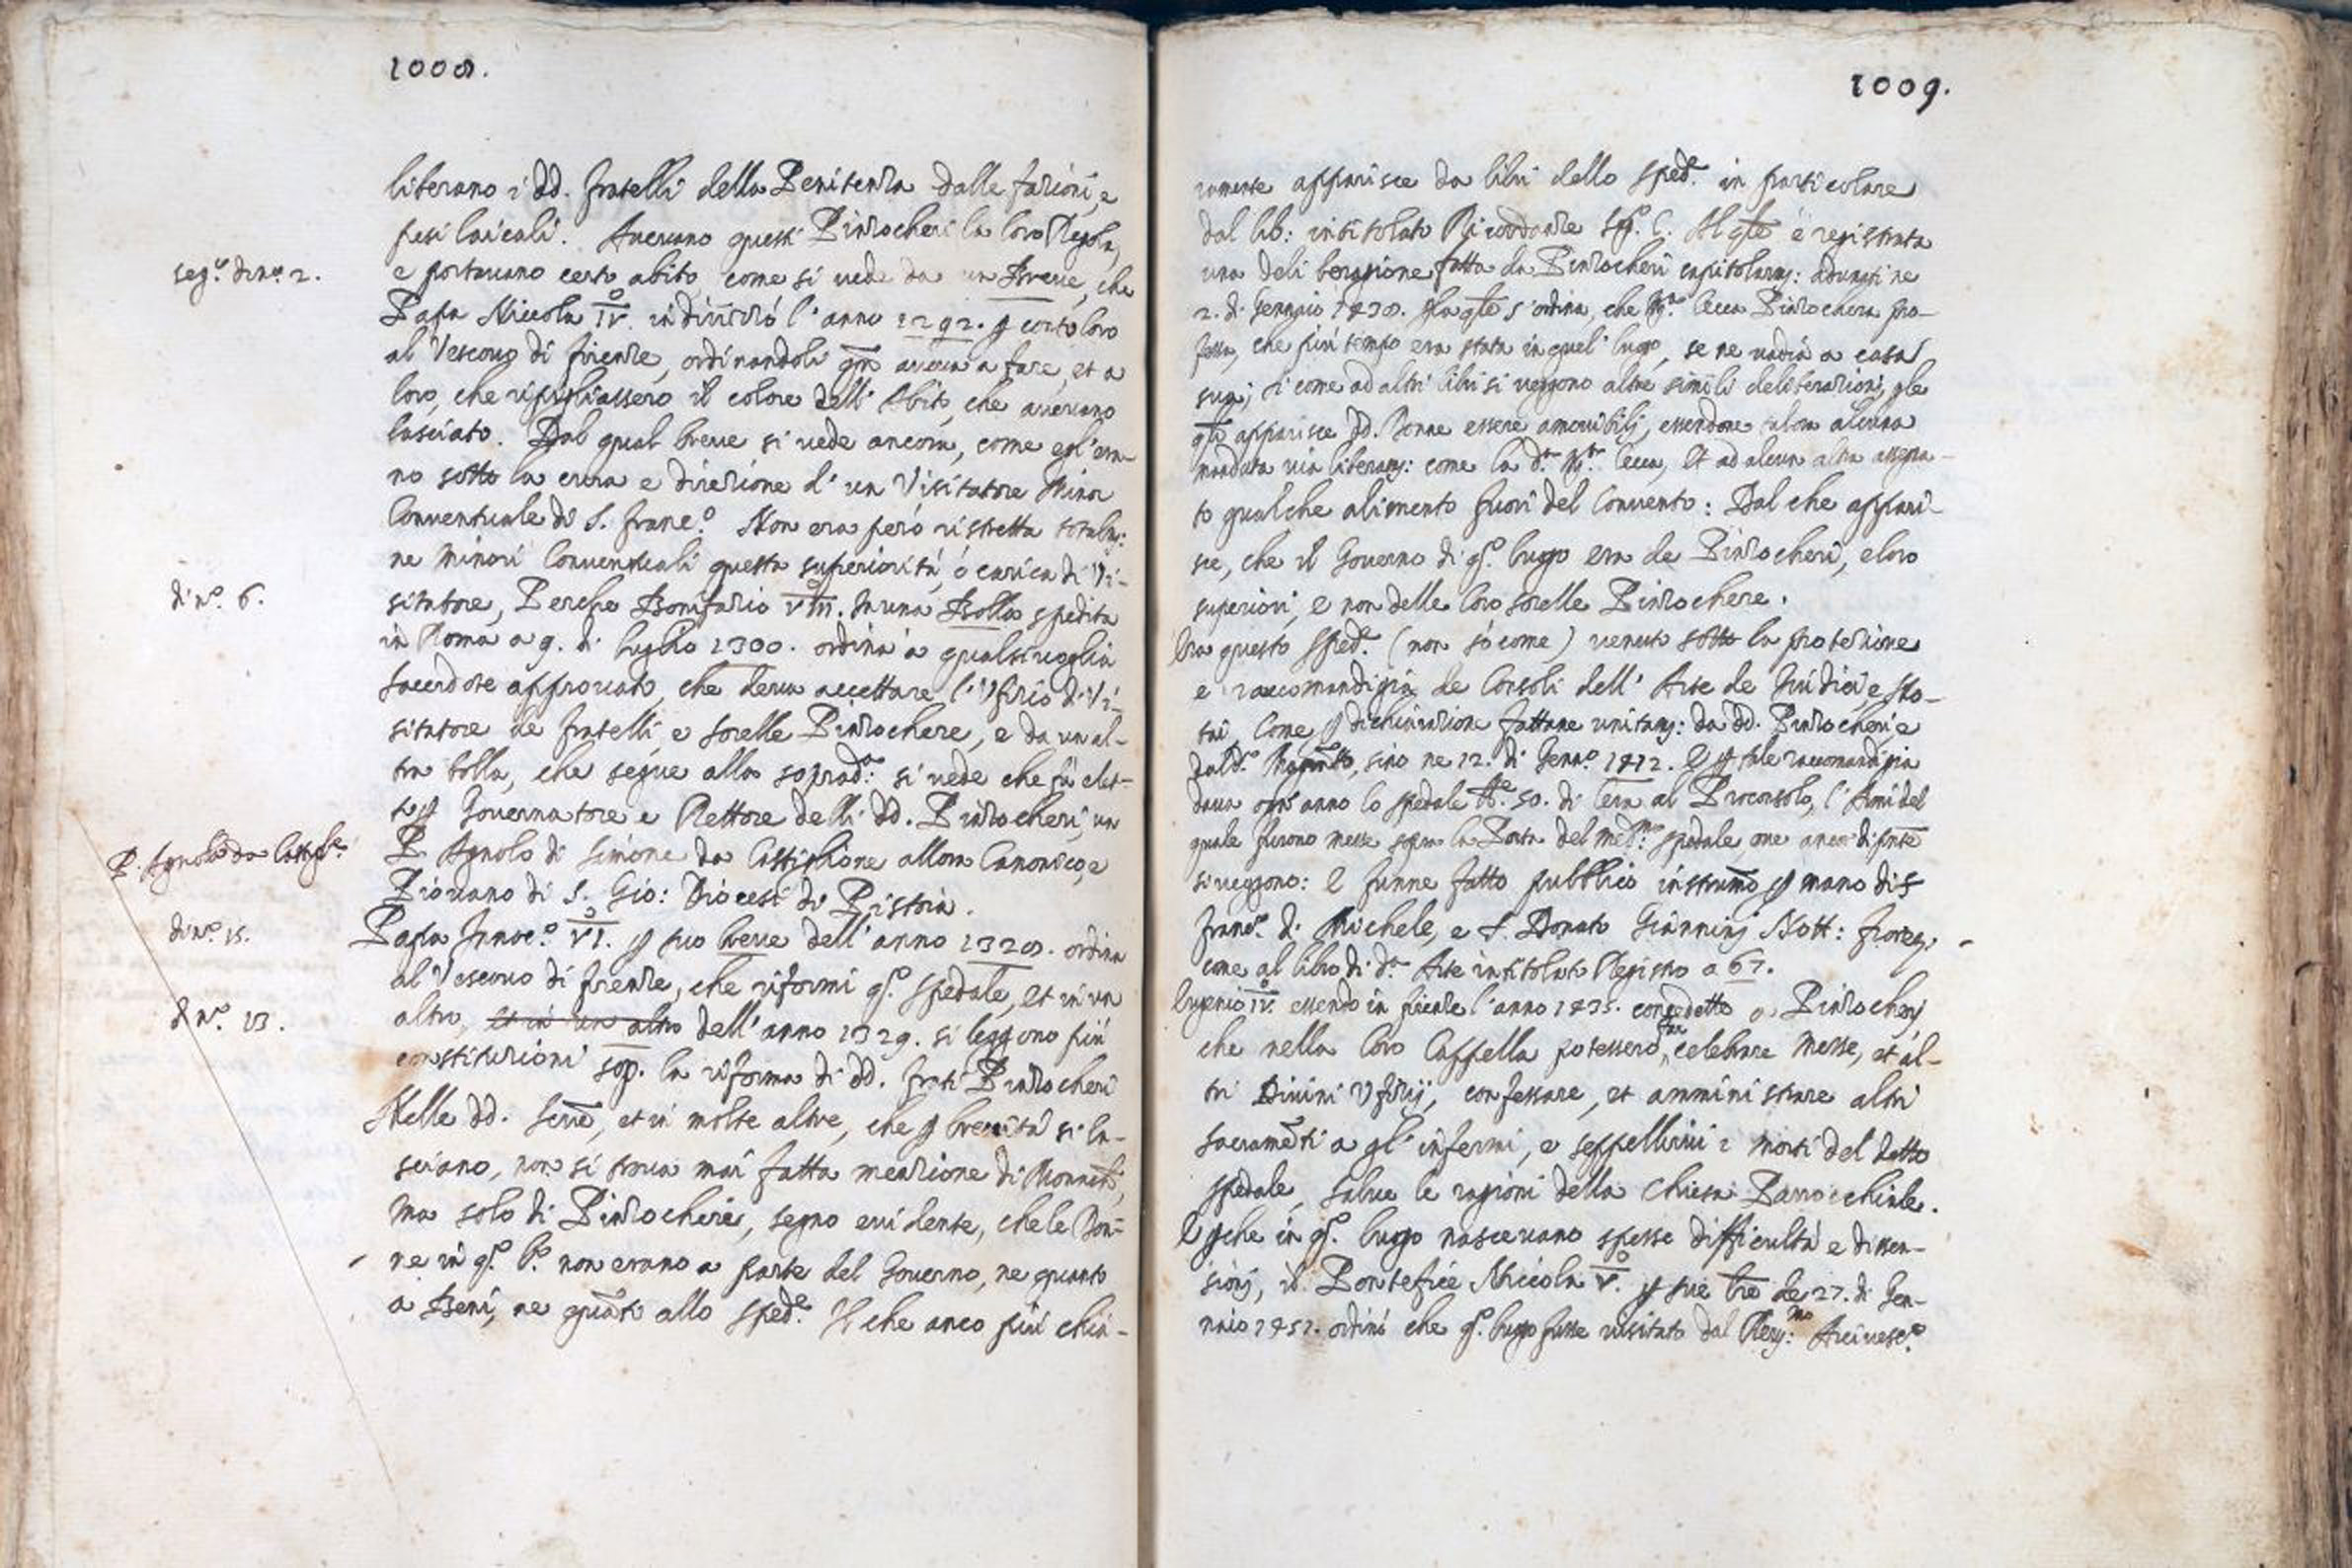 1008.
liberano i dd. fratelli della Penitenza dalle fazioni, e
pesi laicali. Aueuano questi Pinzocheri la loro Regola,
seg.º di nº. 2.
e portauano certo abito, come si uede da un Breue, che
Papa Niccola IV.º indirizzò l'anno 1292. ꝑ conto loro
al Vescouo di firenze, ordinandoli qto aueua a fare, et a
loro, che ripigliassero il colore dell' Abito, che aueuano
lasciato. Dal qual breue si uede ancora, come egl'era-
no sotto la cura e direzione d' un Visitatore Minor
Conuentuale di S. Franc.º Non era però ristretta totalmː
ne Minori Conuentuali questa superiorità, ò carica di Vi-
di nº. 6.
sitatore, Perche Bonifazio VIII.º in una Bolla spedita
in Roma a 9. di luglio 1300. ordina à qualsiuoglia
sacerdote approuato, che deua accettare l'Vfizio di Vi-
sitatore de fratelli, e sorelle Pinzochere, e da un al-
tra bolla, che segue alla soprad.ª si uede che fù elet-
to ꝑ Gouernatore e Rettore delli dd. Pinzocheri, un
P. Agnolo da Castigl.e
P. Agnolo di Simone da Castiglione allora Canonico, e
Piouano di S. Gio: Diocesi di Pistoia.
di nº. 15.
Papa Innoc.º VI.º ꝑ suo breue dell' anno 1328. ordina
al Vescouo di firenze, che riformi q.º spedale, et in un
di nº. 13.
altro, et in un altro dell' anno 1329. si leggono più
constituzioni sop. la riforma di dd. frati Pinzocheri
Nelle dd. scrre, et in molte altre, che ꝑ breuità si la-
sciano, non si troua mai fatta menzione di Monache,
ma solo di Pinzocheri, segno euidente, che le Don-
ne in q.º l.º non erano a parte del Gouerno, ne quanto
a Beni, ne quāto allo sped.e Il che anco più chia-
1009.
ramente apparisce da libri dello sped.e in particolare
dal lib: intitolato Ricordanze seg. C. Al qle è registrata
una deliberazione fatta da Pinzocheri capitolarmː adunati ne
2. di Gennaio 1430. ꝑ la qle s'ordina, che M.ª Cecca Pinzochera pro-
fessa, che più tempo era stata in quel luogo, se ne uadia a casa
sua; si come ad altri libri si ueggono altre simili deliberazioni, ꝑ le
qli apparisce dd. Donne essere amouibili, essendone talora alcuna
mandata uia liberamː come la d.ª M.ª Cecca, et ad alcun altra assegna-
to qualche alimento fuori del Conuento: Dal che appari-
sce, che il Gouerno di q.º luogo era de Pinzocheri, e loro
superiori, e non delle loro sorelle Pinzochere.
Era questo sped.e (non sò come) uenuto sotto la protezione
e raccomandigia de Consoli dell' Arte de Giudici, e No-
tai, Come ꝑ dichiarazione fattane unitamː da dd. Pinzocheri e
dal d.º, sino ne 12. di Genn.º 1412. E ꝑ tale raccomandigia
daua ogn'anno lo spedale lb.e 50. di Cera al Proconsolo, l'Armi del
quale furono messe sopra la Porta del med.mo spedale, oue anco di pnte
si ueggono: E funne fatto pubblico instrumō ꝑ mano di S.
Franc.º di Michele, e S. Donato Giannini Nott: fiorenː
come al libro di d.ª Arte intitolato Registro a 67.
Eugenio IV.º essendo in firenze l'anno 1435. concedette a Pinzocherj
che nella loro Cappella potessero far celebrare Messe, et al-
tri Diuini Vfizij, confessare, et amministrare altri
sacramēti a gl'infermi, e seppellirui i morti del detto
spedale, salue le ragioni della Chiesa Parrocchiale.
E ꝑche in q.º luogo nasceuano spesse difficultà e dissen-
sionj, il Pontefice Niccola V.º ꝑ sue lre de 27. di Gen-
naio 1451. ordinò che q.º luogo fusse uisitato dal Reu:mo Arciuesc.º